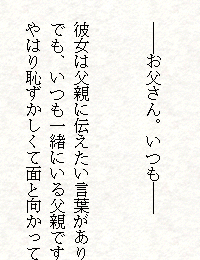 ── お父さん。いつも──
彼女は父親に伝えたい言葉があり
でも、いつも一緒にいる父親です
やはり恥ずかしくて面と向かって